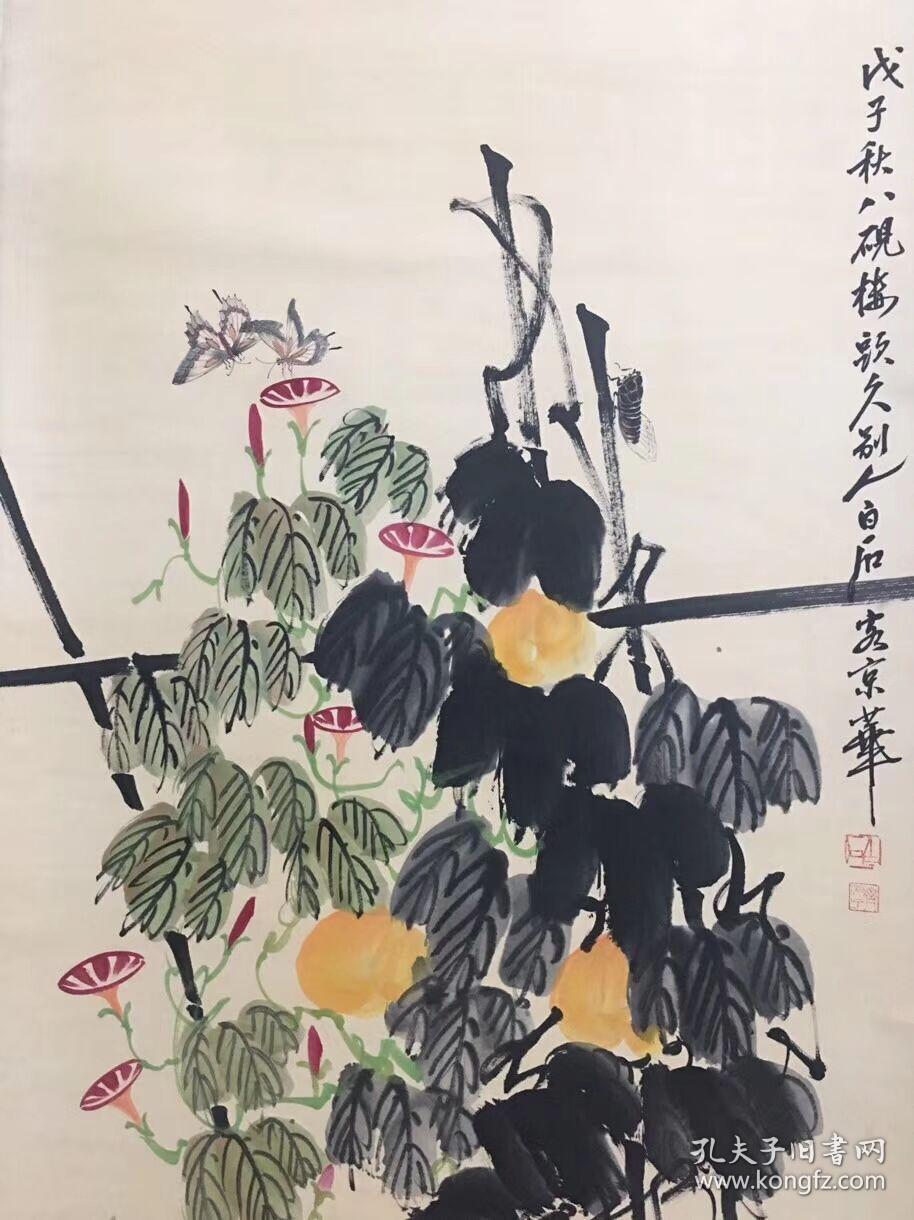 戊子秋八砚楼头久别人白石客京华
孔夫子旧书网
www.kongfz.com